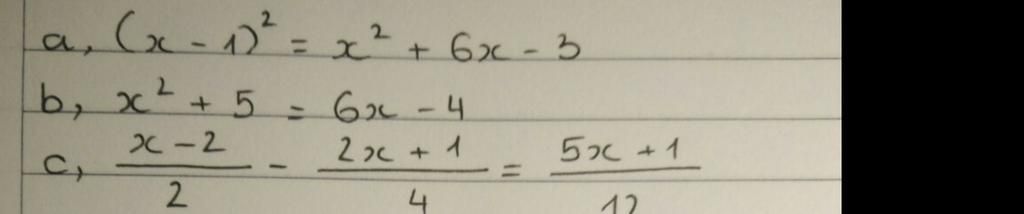 a, (x - 1)² = x² + 6x - 3
b, x² + 5 = 6x - 4
c, (x - 2)/2 - (2x + 1)/4 = (5x + 1)/12